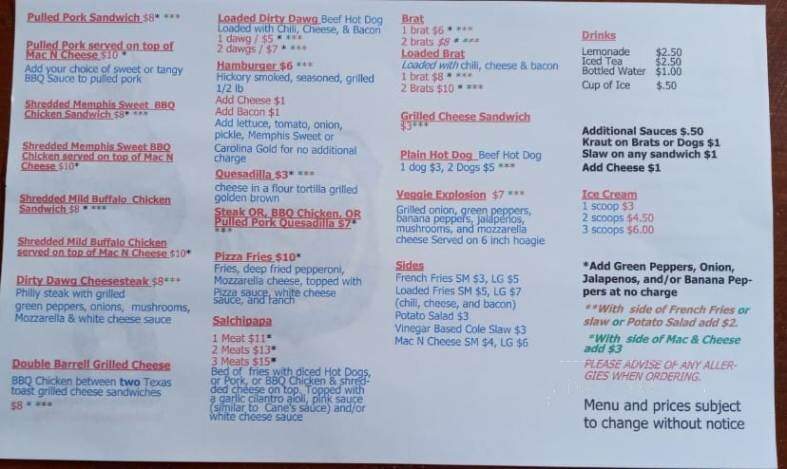 Pulled Pork Sandwich $8* ***
Pulled Pork served on top of
Mac N Cheese $10 *
Add your choice of sweet or tangy
BBQ Sauce to pulled pork
Shredded Memphis Sweet BBQ
Chicken Sandwich $8* ***
Shredded Memphis Sweet BBQ
Chicken served on top of Mac N
Cheese $10*
Shredded Mild Buffalo Chicken
Sandwich $8 * ***
Shredded Mild Buffalo Chicken
served on top of Mac N Cheese $10*
Dirty Dawg Cheesesteak $8***
Philly steak with grilled
green peppers, onions, mushrooms,
Mozzarella & white cheese sauce
Double Barrell Grilled Cheese
BBQ Chicken between two Texas
toast grilled cheese sandwiches
$8 * ***
Loaded Dirty Dawg Beef Hot Dog
Loaded with Chili, Cheese, & Bacon
1 dawg / $5 * ***
2 dawgs / $7 * ***
Hamburger $6 ***
Hickory smoked, seasoned, grilled
1/2 lb
Add Cheese $1
Add Bacon $1
Add lettuce, tomato, onion,
pickle, Memphis Sweet or
Carolina Gold for no additional
charge
Quesadilla $3* ***
cheese in a flour tortilla grilled
golden brown
Steak OR, BBQ Chicken, OR
Pulled Pork Quesadilla $7*
***
Pizza Fries $10*
Fries, deep fried pepperoni,
Mozzarella cheese, topped with
Pizza sauce, white cheese
sauce, and ranch
Salchipapa
1 Meat $11*
2 Meats $13*
3 Meats $15*
Bed of fries with diced Hot Dogs,
or Pork, or BBQ Chicken & shred-
ded cheese on top. Topped with
a garlic cilantro aioli, pink sauce
(similar to Cane's sauce) and/or
white cheese sauce
Brat
1 brat $6 * ***
2 brats $8 * ***
Loaded Brat
Loaded with chili, cheese & bacon
1 brat $8 * ***
2 Brats $10 * ***
Grilled Cheese Sandwich
$3***
Plain Hot Dog Beef Hot Dog
1 dog $3, 2 Dogs $5 ***
Veggie Explosion $7 ***
Grilled onion, green peppers,
banana peppers, jalapenos,
mushrooms, and mozzarella
cheese Served on 6 inch hoagie
Sides
French Fries SM $3, LG $5
Loaded Fries SM $5, LG $7
(chili, cheese, and bacon)
Potato Salad $3
Vinegar Based Cole Slaw $3
Mac N Cheese SM $4, LG $6
Drinks
Lemonade $2.50
Iced Tea $2.50
Bottled Water $1.00
Cup of Ice $.50
Additional Sauces $.50
Kraut on Brats or Dogs $1
Slaw on any sandwich $1
Add Cheese $1
Ice Cream
1 scoop $3
2 scoops $4.50
3 scoops $6.00
*Add Green Peppers, Onion,
Jalapenos, and/or Banana Pep-
pers at no charge
**With side of French Fries or
slaw or Potato Salad add $2.
*With side of Mac & Cheese
add $3
PLEASE ADVISE OF ANY ALLER-
GIES WHEN ORDERING.
Menu and prices subject
to change without notice